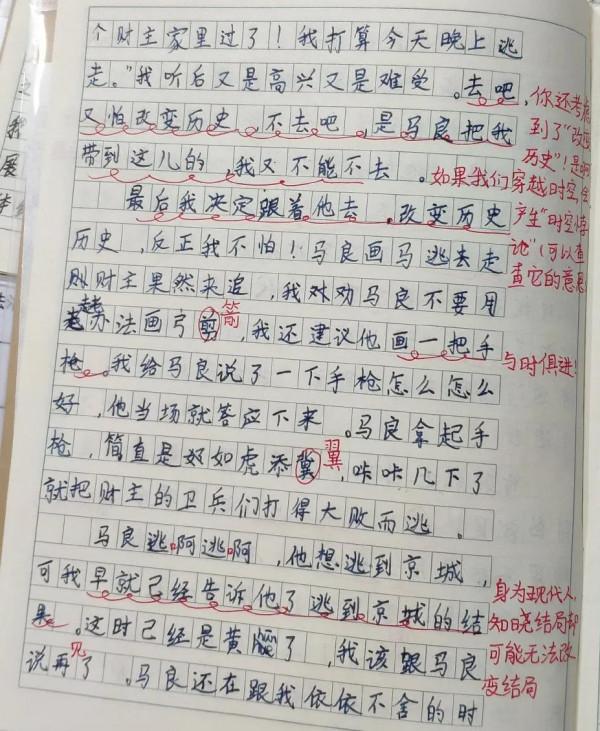 个财主家里过了！我打算今天晚上逃
走。”我听后又是高兴又是难受。去吧，
又怕改变历史，不去吧，是马良把我
带到这儿的，我又不能不去。
最后我决定跟着他去。改变历史
历史，反正我不怕！马良画马逃去走
财主果然来追，我对劝马良不要用
办法画弓剪，我还建议他画一把手
枪。我给马良说了一下手枪怎么怎么
好，他当场就答应下来。马良拿起手
枪，简直是好如虎添冀，咔咔几下了
就把财主的卫兵们打得大败而逃。
马良逃啊逃啊，他想逃到京城，
可我早就已经告诉他了逃到京城的结
果。这时已经是黄了，我该跟马良
说再了。马良还在跟我依依不舍的时
你还考虑
到了“改变
历史”！是吧
如果我们穿越时空，会
产生“时空悖
论”（可以查
查它的意思
箭
与时俱进！
翼
身为现代人，
知晓结局却
可能无法改
变结局
见